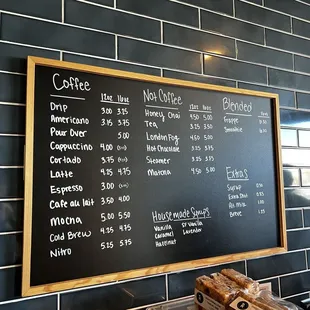 Coffee 12oz 16oz
Drip 3.00 3.25
Americano 3.25 3.75
Pour Over 5.00
Cappuccino 4.00
Cortado 3.75
Latte 4.25 4.75
Espresso 3.00
Cafe au lait 3.50
Mocha 5.00 5.50
Cold Brew 4.25 4.75
Nitro 5.25 5.75
Not Coffee
Honey, Chai 4.50 5.00
Tea
London Fog
Hot Chocolate
Steamer
Matcha 4.50 5.00
Housemade Syrups
Vanilla SF Vanilla
Caramel Lavender
Hazelnut
Blended
Frappe
Smoothie
Extras
Syrup
Extra Shot
Alt Milk
Breve